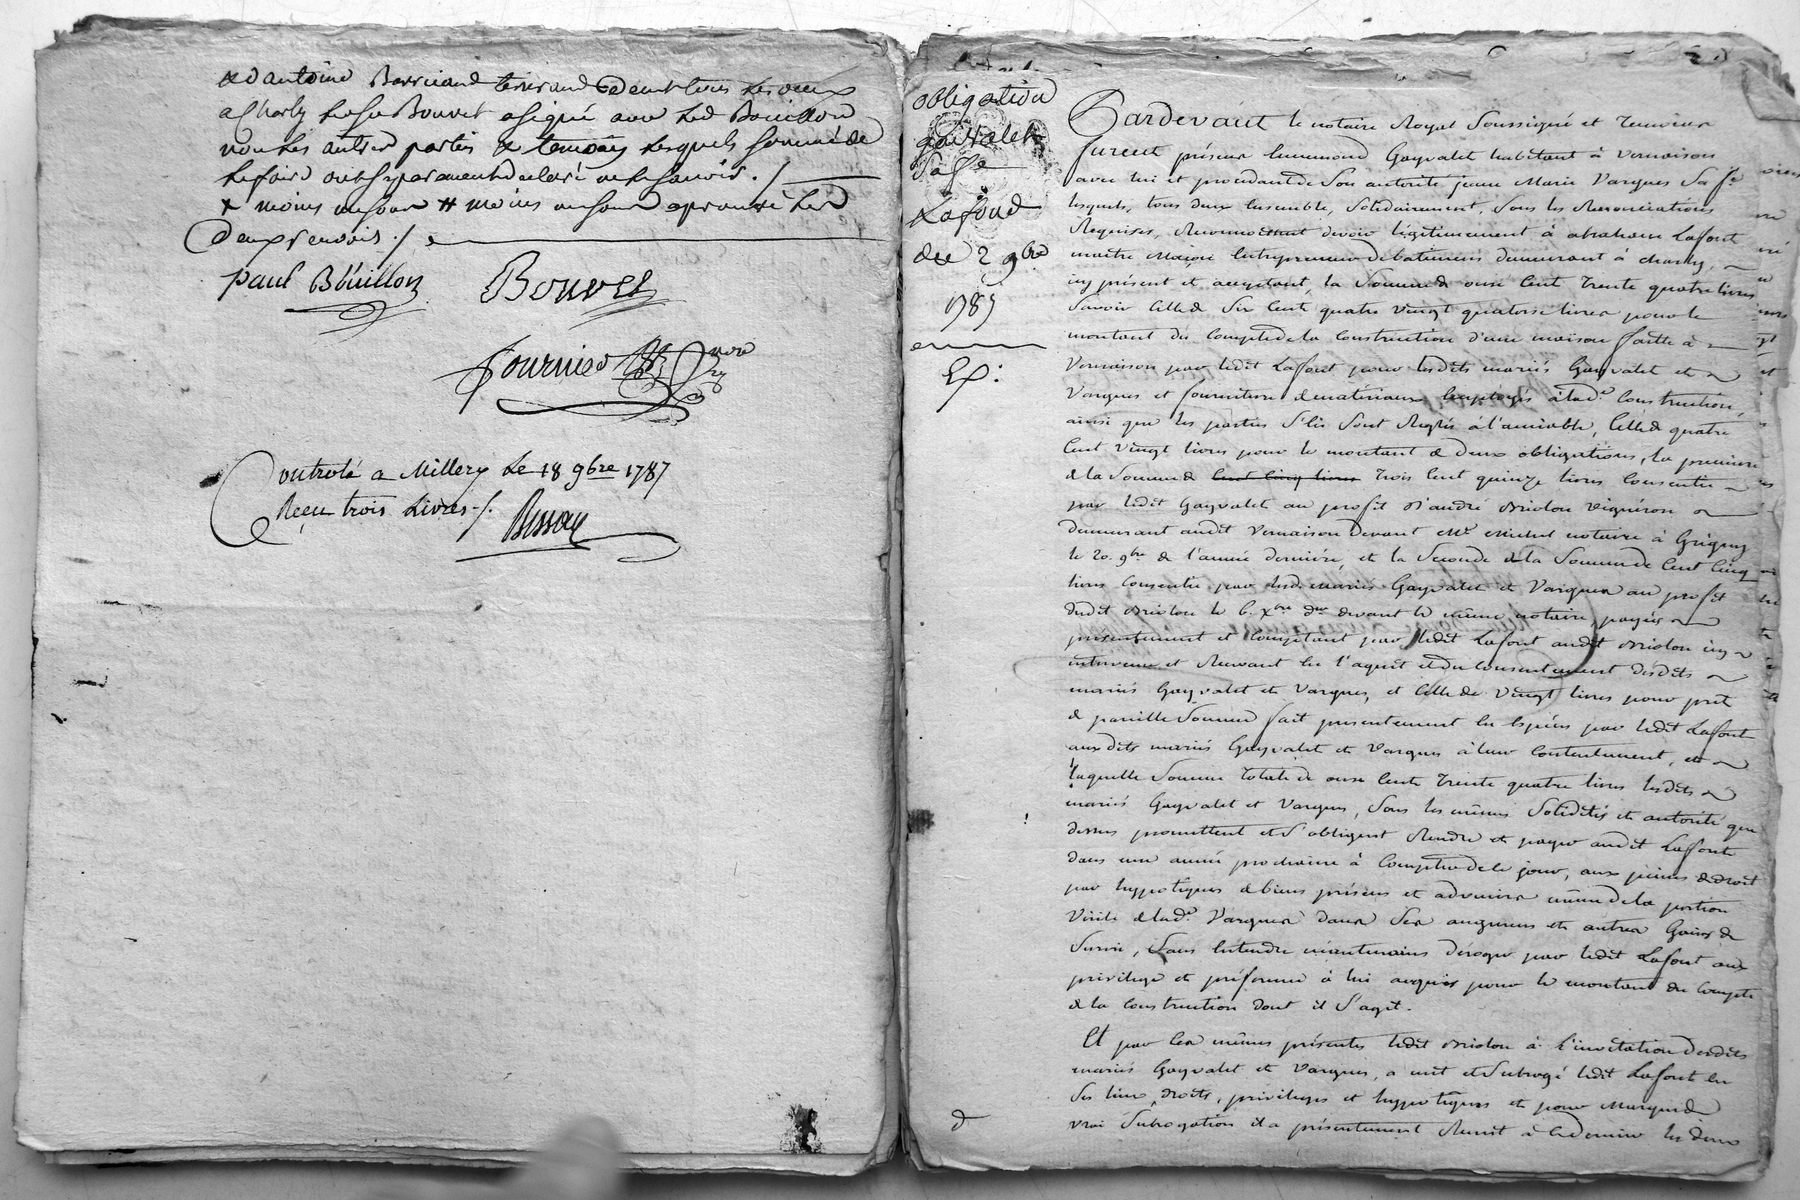 & d'antoine Barricand tisserand demeurants les deux
a Charly led. Sr Bouvet a signé avec led. Bouillon
non les autres parties & temoins lesquels sommé de
le faire ont séparement declaré ne le savoir ./.
+ moins une # moins approuvé les
deux renvois ./.
paul Bouillon Bouvet
fournier nore
Controlé a Millery le 18 9bre 1787
Reçu trois Livres ./.
Bessay
obligation
gayvalet
sa fe
Lafond
du 2 9bre
1787
Ex:
Pardevant le notaire Royal soussigné et temoins
furent présens Gayvalet habitant à Vernaison
avec lui et procedant de son autorité jeane Marie Vargues sa fe
lesquels, tous deux ensemble, solidairement, sous les Renonciations
Requises, Reconnoissent devoir légitimement à abraham Lafont
maitre maçon entrepreneur de batimens demeurant à charly,
icy présent et acceptant, la Somme de onze cent trente quatre livres
savoir celle de six cent quatre vingt quatorze livres pour le
montant du compte de la construction d'une maison faitte à
Vernaison par ledit Lafont pour lesdits mariés Gayvalet et
Vargues et fourniture de materiaux employés à lad. construction,
ainsi que les parties s'en sont Reglés à l'amiable, celle de quatre
cent vingt livres pour le montant de deux obligations, la premiere
de la somme de cent cinq livres trois cent quinze livres consentie
par ledit Gayvalet au profit d'andré Briolon vigneron
demeurant audit Vernaison devant Me Michel notaire à Grigny
le 20. 9bre de l'année derniére, et la seconde de la Somme de cent cinq
livres consentie par lesd. mariés Gayvalet et Vargues au profit
dudit Briolon le 6. xbre der devant le même notaire, payées
présentement et comptant par ledit Lafont audit Briolon icy
intervenu et Recevant en l'aquit et du consentement desdits
mariés Gayvalet et Vargues, et celle de vingt livres pour prêt
de pareille somme fait presentement en espéces par ledit Lafont
auxdits mariés Gayvalet et Vargues à leur contentement,
laquelle somme totale de onze cent trente quatre livres lesdits
mariés Gayvalet et Vargues, sous les mêmes solidités et autorité que
dessus promettent et s'obligent Rendre et payer audit Lafont
dans une année prochaine à compter de ce jour, aux peines de droit
par hypotéques de biens présens et advenirs même de la portion
virile de lad. Vargues dans ses augmens et autres Gains de
survie, sans entendre néantmoins déroger par ledit Lafont aux
privilege et préférence à lui acquis pour le montant du compte
de la construction dont il s'agit.
Et par ces mêmes présentes ledit Briolon à l'invitation desdits
mariés Gayvalet et Vargues, a mit et subrogé ledit Lafont en
ses lieux, droits, privileges et hypotéques et pour marque de
vraie subrogation il a présentement Remit à ce dernier les deux